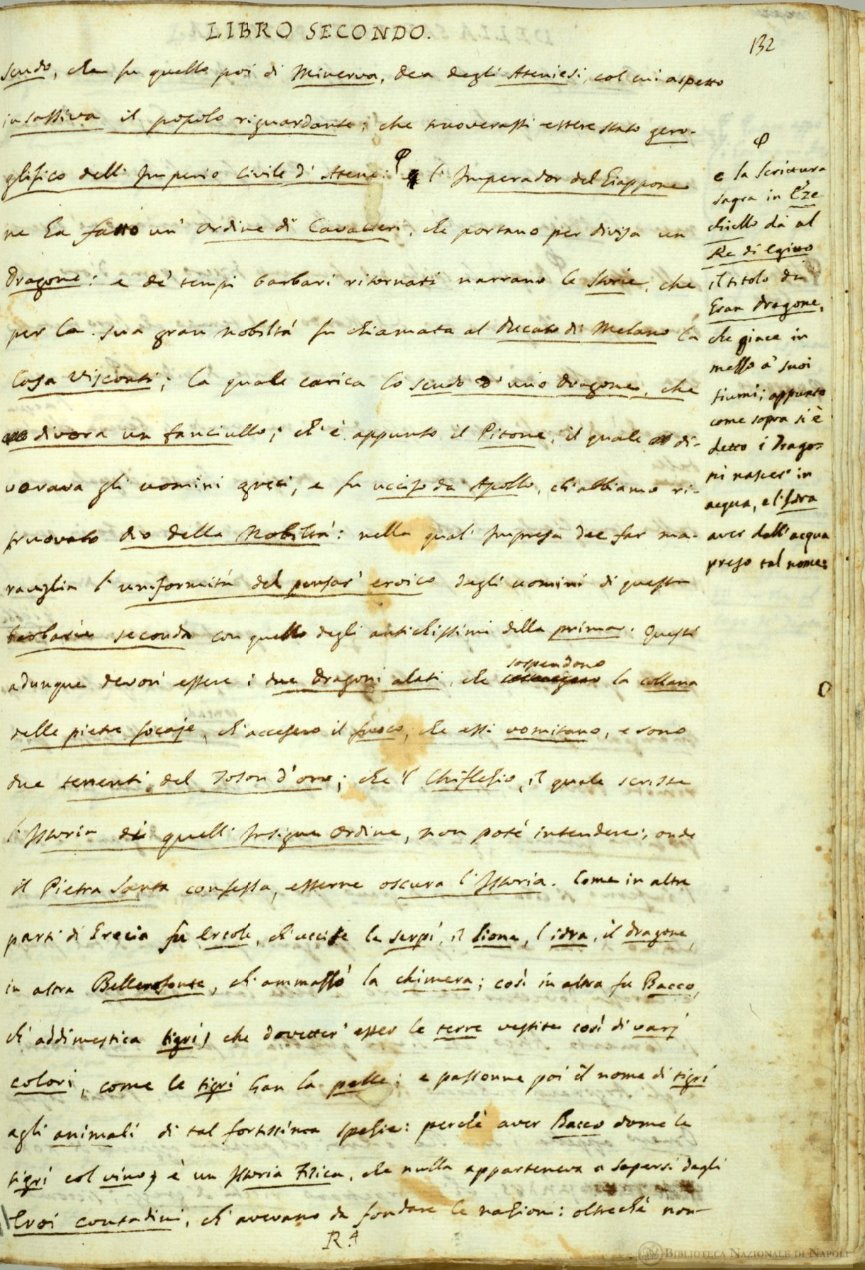 LIBRO SECONDO.
132
scudo, che fu quello poi di Minerva, dea degli Ateniesi, col cui aspetto
insassiva il popolo riguardante; che truoverassi essere stato gero-
glifico dell' Imperio Civile di Atene: l' Imperador del Giappone
ne ha fatto un' Ordine di Cavalieri, che portano per divisa un
Dragone: e de' tempi barbari ritornati narrano le Storie, che
per la sua gran nobiltà fu chiamata al Ducato di Melano la
Casa Visconti; la quale carica lo scudo d'uno Dragone, che
divora un fanciullo; ch' è appunto il Pitone, il quale di-
vorava gli uomini greci, e fu ucciso da Apollo, ch' abbiamo ri-
truovato dio della Nobiltà: nella qual' Impresa dee far ma-
raviglia l' uniformità del pensar' eroico degli uomini di questa
barbarie seconda con quello degli antichissimi della prima. Questi
adunque devon' essere i due Dragoni alati, che sospendono la collana
delle pietre focaje, ch' accesero il fuoco, che essi vomitano, e sono
due tenenti del Toson d'oro; che 'l Chiflezio, il quale scrisse
l' Istoria di quell' Insigne Ordine, non poté intendere; onde
il Pietra Santa confessa, esserne oscura l' Istoria. Come in altre
parti di Grecia fu Ercole, ch' uccise le serpi, il lione, l' idra, il dragone,
in altra Bellerofonte, ch' ammazzò la chimera; così in altra fu Bacco,
ch' addimestica tigri, che dovetter' esser le terre vestite così di varj
colori, come le tigri han la pelle: e passonne poi il nome di tigri
agli animali di tal fortissima spezie: perchè aver Bacco dome le
tigri col vino, è un' Istoria Fisica, che nulla apparteneva a sapersi dagli
Eroi contadini, ch' avevano da fondare le nazioni: oltrechè non
e la Scrittura
sagra in Eze-
chiello dà al
Re di Egitto
il titolo di
Gran dragone,
che giace in
mezzo a' suoi
fiumi; appunto
come sopra si è
detto i Drago-
ni nascer' in
acqua, e l' Idra
aver dall' acqua
preso tal nome:
BIBLIOTECA NAZIONALE DI NAPOLI